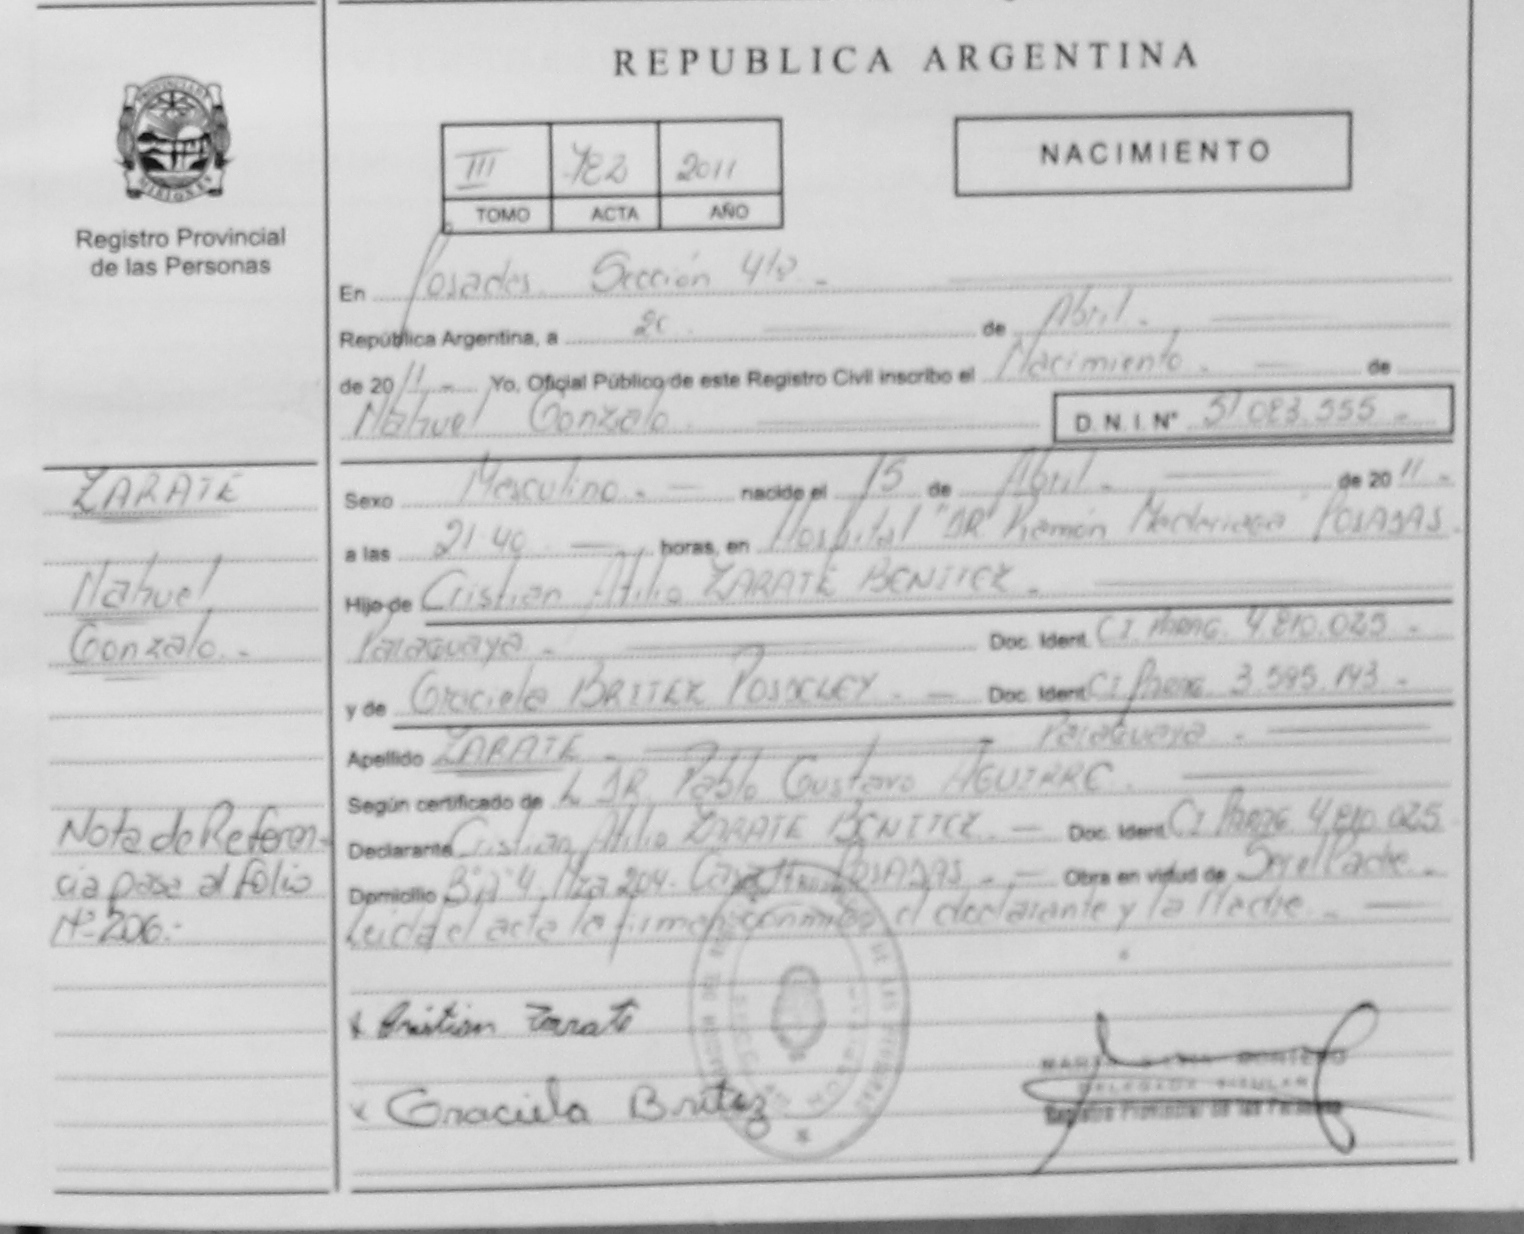 REPUBLICA ARGENTINA
NACIMIENTO
III 2011
TOMO ACTA AÑO
Registro Provincial
de las Personas
En Posadas Sección 4ta -
República Argentina, a de Abril.
de 2011 - Yo, Oficial Público de este Registro Civil inscribo el Nacimiento. de
Nahuel Gonzalo. D.N.I. N° 51.083.555 -
Sexo Masculino. - nacido el 15 de Abril. de 2011 -
a las 21.40 horas, en Hospital "DR Ramón Madariaga" POSADAS.
Hijo de Cristian Atilio ZARATE BENITEZ.
Paraguaya - Doc. Ident. CI. PARAG. 4.810.025 -
y de Graciela BRITEZ Doc. Ident. CI PARAG 3.595.143 -
Apellido ZARATE - Paraguaya -
Según certificado de DR. Pablo Gustavo AGUIRRE.
Declarante Cristian Atilio ZARATE BENITEZ. - Doc. Ident. CI PARAG 4.810.025
Domicilio Mza 204. Casa POSADAS - Obra en virtud de Ser el Padre -
Leida el acta la firman conmigo el declarante y la Madre. -
x Cristian Zarate
x Graciela Britez
DELEGADA TITULAR
Registro Provincial de las Personas
ZARATE
Nahuel
Gonzalo. -
Nota de Referen-
cia pase al folio
N° 206.-